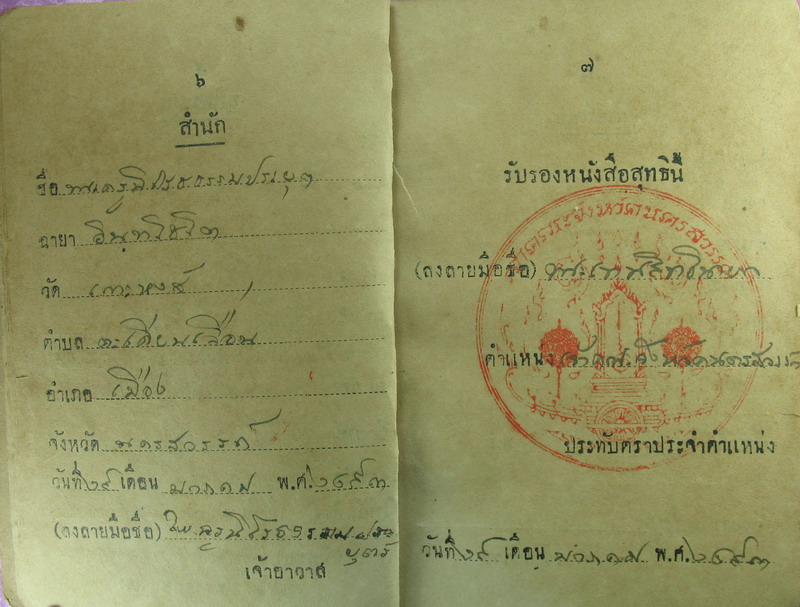 ๖
สำนัก
ชื่อ พระครูนิโรธธรรมประยุต
ฉายา อินฺทโชโต
วัด เกาะหงส์
ตำบล ตะเคียนเลื่อน
อำเภอ เมือง
จังหวัด นครสวรรค์
วันที่ ๒๙ เดือน มกราคม พ.ศ. ๒๔๙๓
(ลงลายมือชื่อ) ธรรมประ
ยุตร์
เจ้าอาวาส
๗
รับรองหนังสือสุทธินี้
(ลงลายมือชื่อ)
ตำแหน่ง นครสวรรค์
ประทับตราประจำตำแหน่ง
วันที่ ๒๙ เดือน มกราคม พ.ศ. ๒๔๙๓